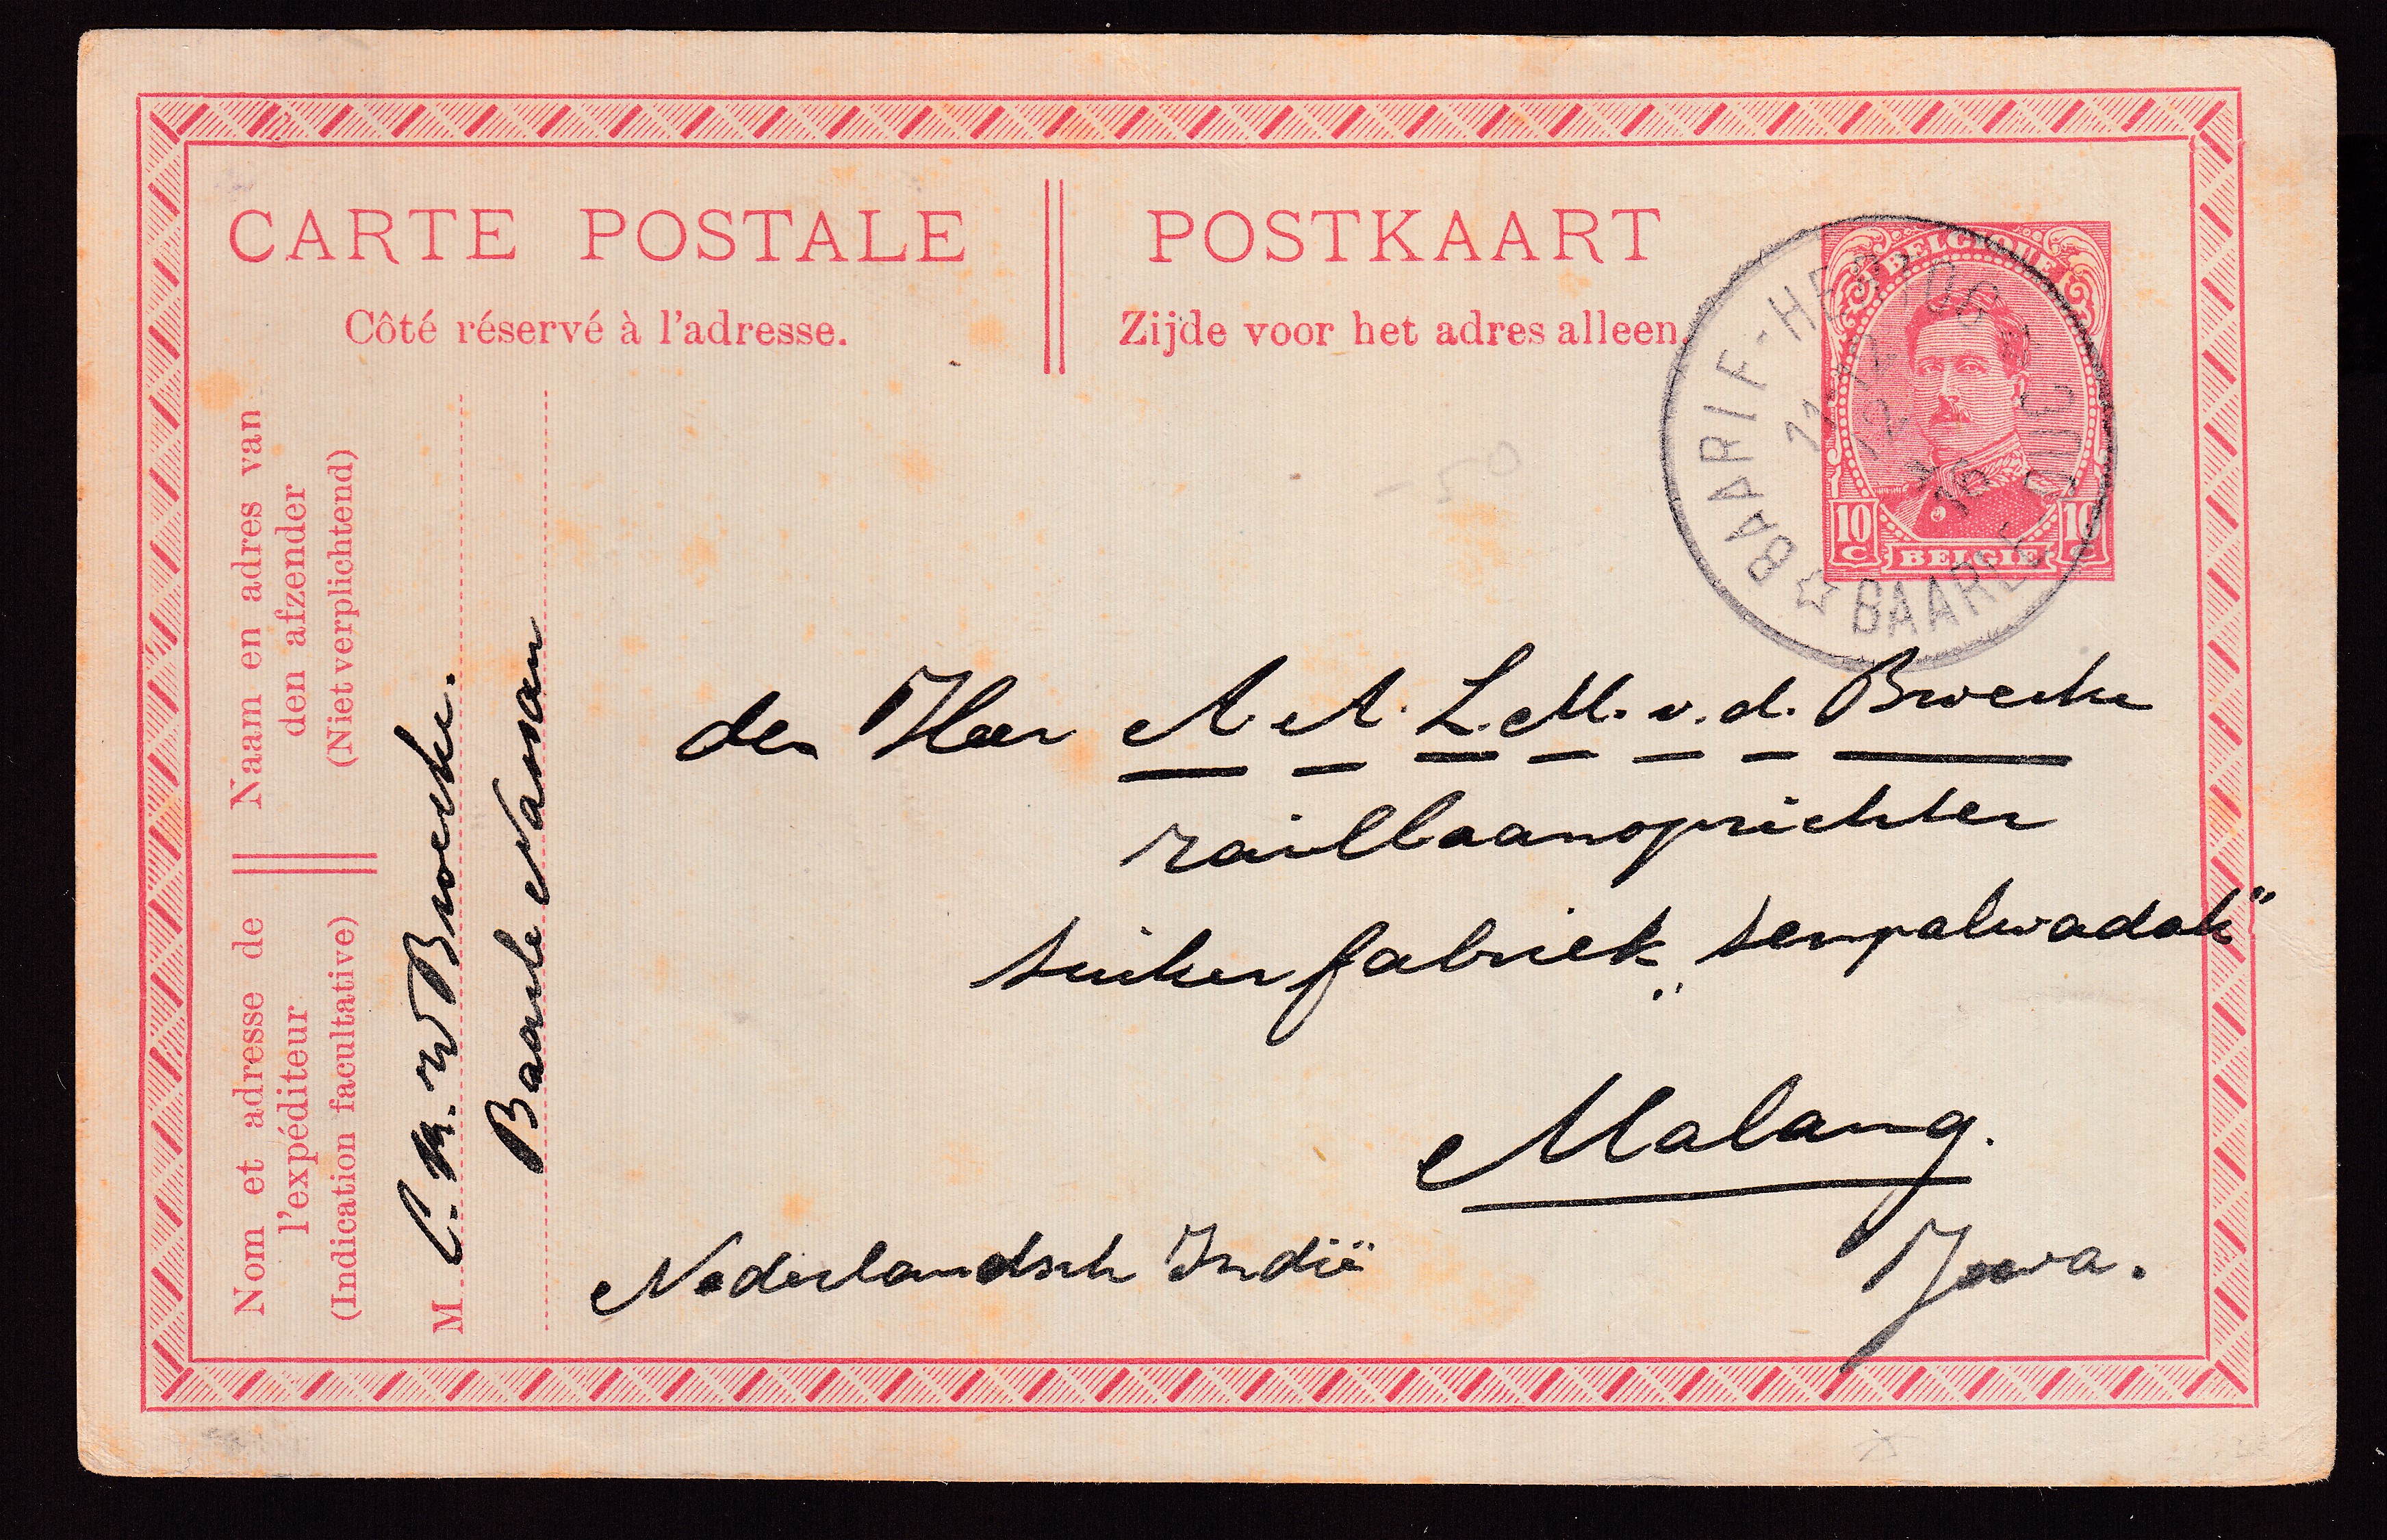 CARTE POSTALE
POSTKAART
Côté réservé à l'adresse.
Zijde voor het adres alleen.
BELGIQUE
10 C
10 C
BELGIE
BAARLE-HERTOG
12
12
15
BAARLE DUC
-50
Naam en adres van
den afzender
(Niet verplichtend)
Nom et adresse de
l'expéditeur
(Indication facultative)
M
C. M. W Broeke.
Baarle Nassau
den Heer A. A. L. M. v. d. Broeke
railbaanoprichter
suikerfabriek „sempalwadak"
Malang.
Nederlandsch Indië
Java.